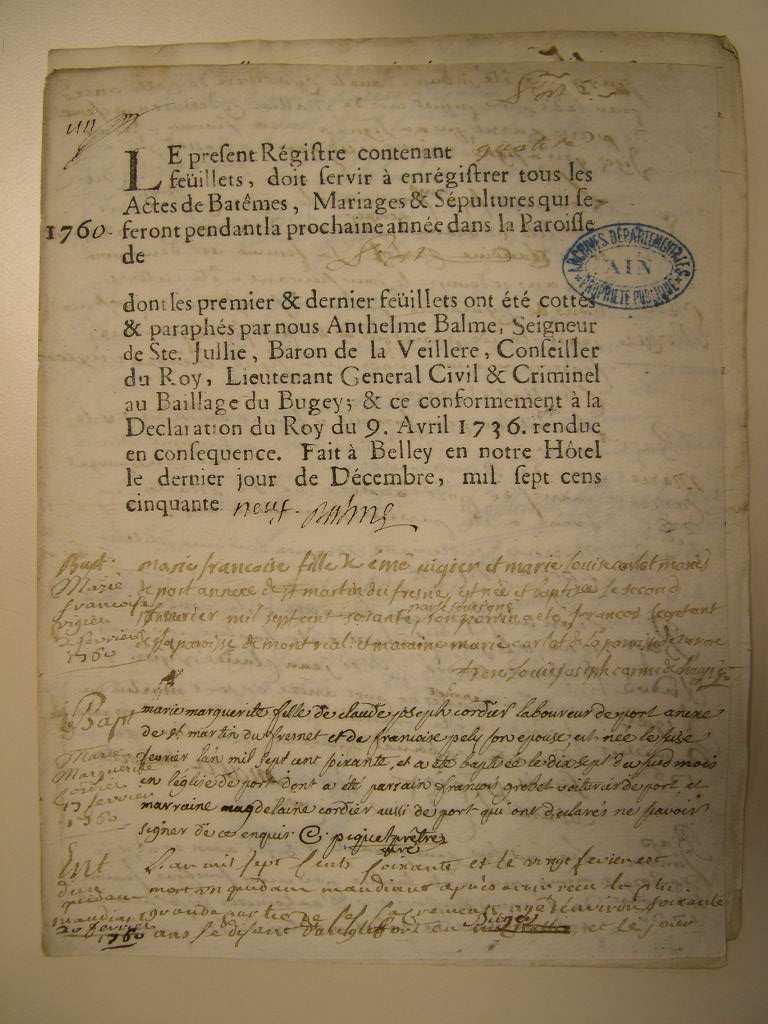 LE present Régistre contenant quatre
feüillets, doit servir à enrégistrer tous les
Actes de Batêmes, Mariages & Sépultures qui se
1760. feront pendant la prochaine année dans la Paroisse
de Port
ARCHIVES DÉPARTEMENTALES
AIN
PROPRIÉTÉ PUBLIQUE
dont les premier & dernier feüillets ont été cottés
& paraphés par nous Anthelme Balme, Seigneur
de Ste. Jullie, Baron de la Veillere, Conseiller
du Roy, Lieutenant General Civil & Criminel
au Baillage du Bugey; & ce conformement à la
Declaration du Roy du 9. Avril 1736. rendue
en consequence. Fait à Belley en notre Hôtel
le dernier jour de Décembre, mil sept cens
cinquante neuf. Balme
Bapt.
Marie
francoise
vigier
2 fevrier
1760
marie francoise fille de émé vigier et marie Louise carlot mariés
de port annexe de st martin du fresne, est née et baptisée le second
fevrier mil sept cent soixante, son parrin a eté francois
de la paroisse de montreal: et maraine marie carlot de la paroisse de
frere Louis joseph carme
Bapt
Marie
Marguerite
Cordier
17 fevrier
1760
marie marguerite fille de claude joseph cordier laboureur de port anexe
de st martin du fresnet et de francoise pely son epouse, est née le seise
fevrier l'an mil sept cent soixante, et a eté baptisée le dix sept du sud mois
en l'eglise de port dont a eté parrain françois grobet voiturier de port, et
marraine magdelaine cordier aussi de port qui ont declarés ne sçavoir
signer de ce enquis C. piquet prêtre
Ent
d'un
quidam
mandiant
20 fevrier
1760
L'an mil sept cents soixante et le vingt fevrier est
mort un quidam mandiant après avoir recu la plus
grande partie de ses sacrements agé d'environ soixante
ans se disant et le jour